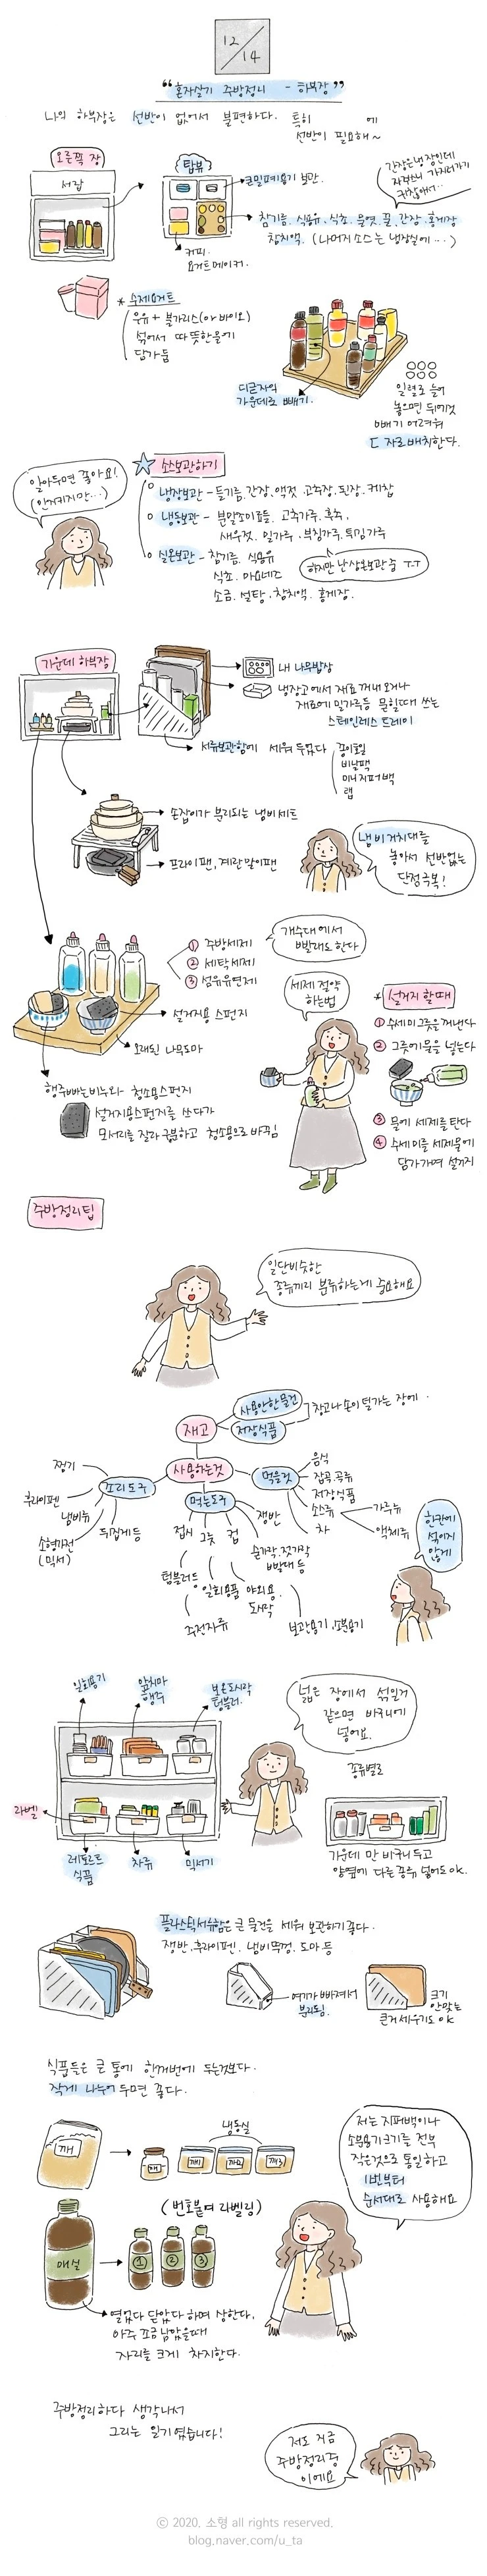 12/14
"혼자살기 주방정리 - 하부장"
나의 하부장은 선반이 없어서 불편하다. 특히 에
선반이 필요해~
오른쪽 장
서랍
탑뷰
큰밀폐용기 보관.
간장은 냉장인데
귀찮아서..
참기름, 식용유, 식초, 물엿, 꿀, 간장, 홍게장
참치액. (나머지 소스는 냉장실에...)
커피.
요거트메이커.
* 수제요거트
우유 + 불가리스(or 바이오)
섞어서 따뜻한물에
담가둠
디귿자의
가운데로 빼기.
일렬로 늘어
놓으면 뒤에것
빼기 어려워
ㄷ 자로 배치한다.
알아두면 좋아요!
(안지키지만...)
소스보관하기
냉장보관 - 들기름, 간장, 액젓, 고추장, 된장, 케찹
냉동보관 - 분말조미료들, 고춧가루, 후추,
새우젓, 밀가루, 부침가루, 튀김가루
실온보관 - 참기름, 식용유
식초, 마요네즈
소금, 설탕, 참치액, 홍게장.
하지만 난 상온보관중 ㅜ.ㅜ
가운데 하부장
내 나무밥상
냉장고에서 재료 꺼내오거나
재료에 밀가루등 묻힐때 쓰는
스테인레스 트레이
서류보관함에 세워 두었다
종이호일
비닐팩
미니지퍼백
랩
손잡이가 분리되는 냄비세트
프라이팬, 계란말이팬
냄비거치대를
놓아서 선반없는
단점극복!
① 주방세제
② 세탁세제
③ 섬유유연제
개수대에서
빨래도 한다
설거지용 스펀지
오래된 나무도마
행주빠는비누와 청소용스펀지
설거지용스펀지를 쓰다가
모서리를 잘라 구분하고 청소용으로 바꿈
세제 절약
하는법
* 설거지 할때
① 수세미그릇을 꺼낸다
② 그릇에물을 넣는다
③ 물에 세제를 탄다
④ 수세미를 세제물에
담가가며 설거지
주방정리팁
일단비슷한
종류끼리 분류하는게 중요해요
재고
사용안한물건
저장식품
창고나 손이 덜가는 장에.
사용하는것
조리도구
찜기
후라이팬
냄비류
소형가전
(믹서)
뒤집게등
먹는도구
접시
그릇
컵
쟁반
숟가락, 젓가락
빨대등
텀블러등
일회용품
야외용.
도시락
주전자류
보관용기, 소분용기
먹을것
음식
잡곡, 곡류
저장식품
소스류
차
가루류
액체류
한칸에
섞이지
않게
일회용기
앞치마
행주
보온도시락
텀블러.
라벨
레토르트
식품
차류
믹서기
넓은 장에서 섞일거
같으면 바구니에
넣어요.
종류별로
가운데 만 바구니 두고
양옆에 다른 종류 넣어도 ok.
플라스틱서류함은 큰 물건을 세워 보관하기 좋다.
쟁반, 후라이팬, 냄비뚜껑, 도마 등
여기가 빠져서
분리됨.
크기
안맞는
큰거 세우기도 ok
식품들은 큰 통에 한꺼번에 두는것보다.
작게 나누어 두면 좋다.
깨
깨
냉동실
깨1
깨2
깨3
(번호붙여 라벨링)
매실
①
②
③
저는 지퍼백이나
소분용기크기를 전부
작은것으로 통일하고
1번부터
순서대로 사용해요
열었다 닫았다 하며 상한다.
아주 조금 남았을때
자리를 크게 차지한다.
주방정리하다 생각나서
그리는 일기였습니다!
저도 지금
주방정리중
이에요
ⓒ 2020. 소형 all rights reserved.
blog.naver.com/u_ta